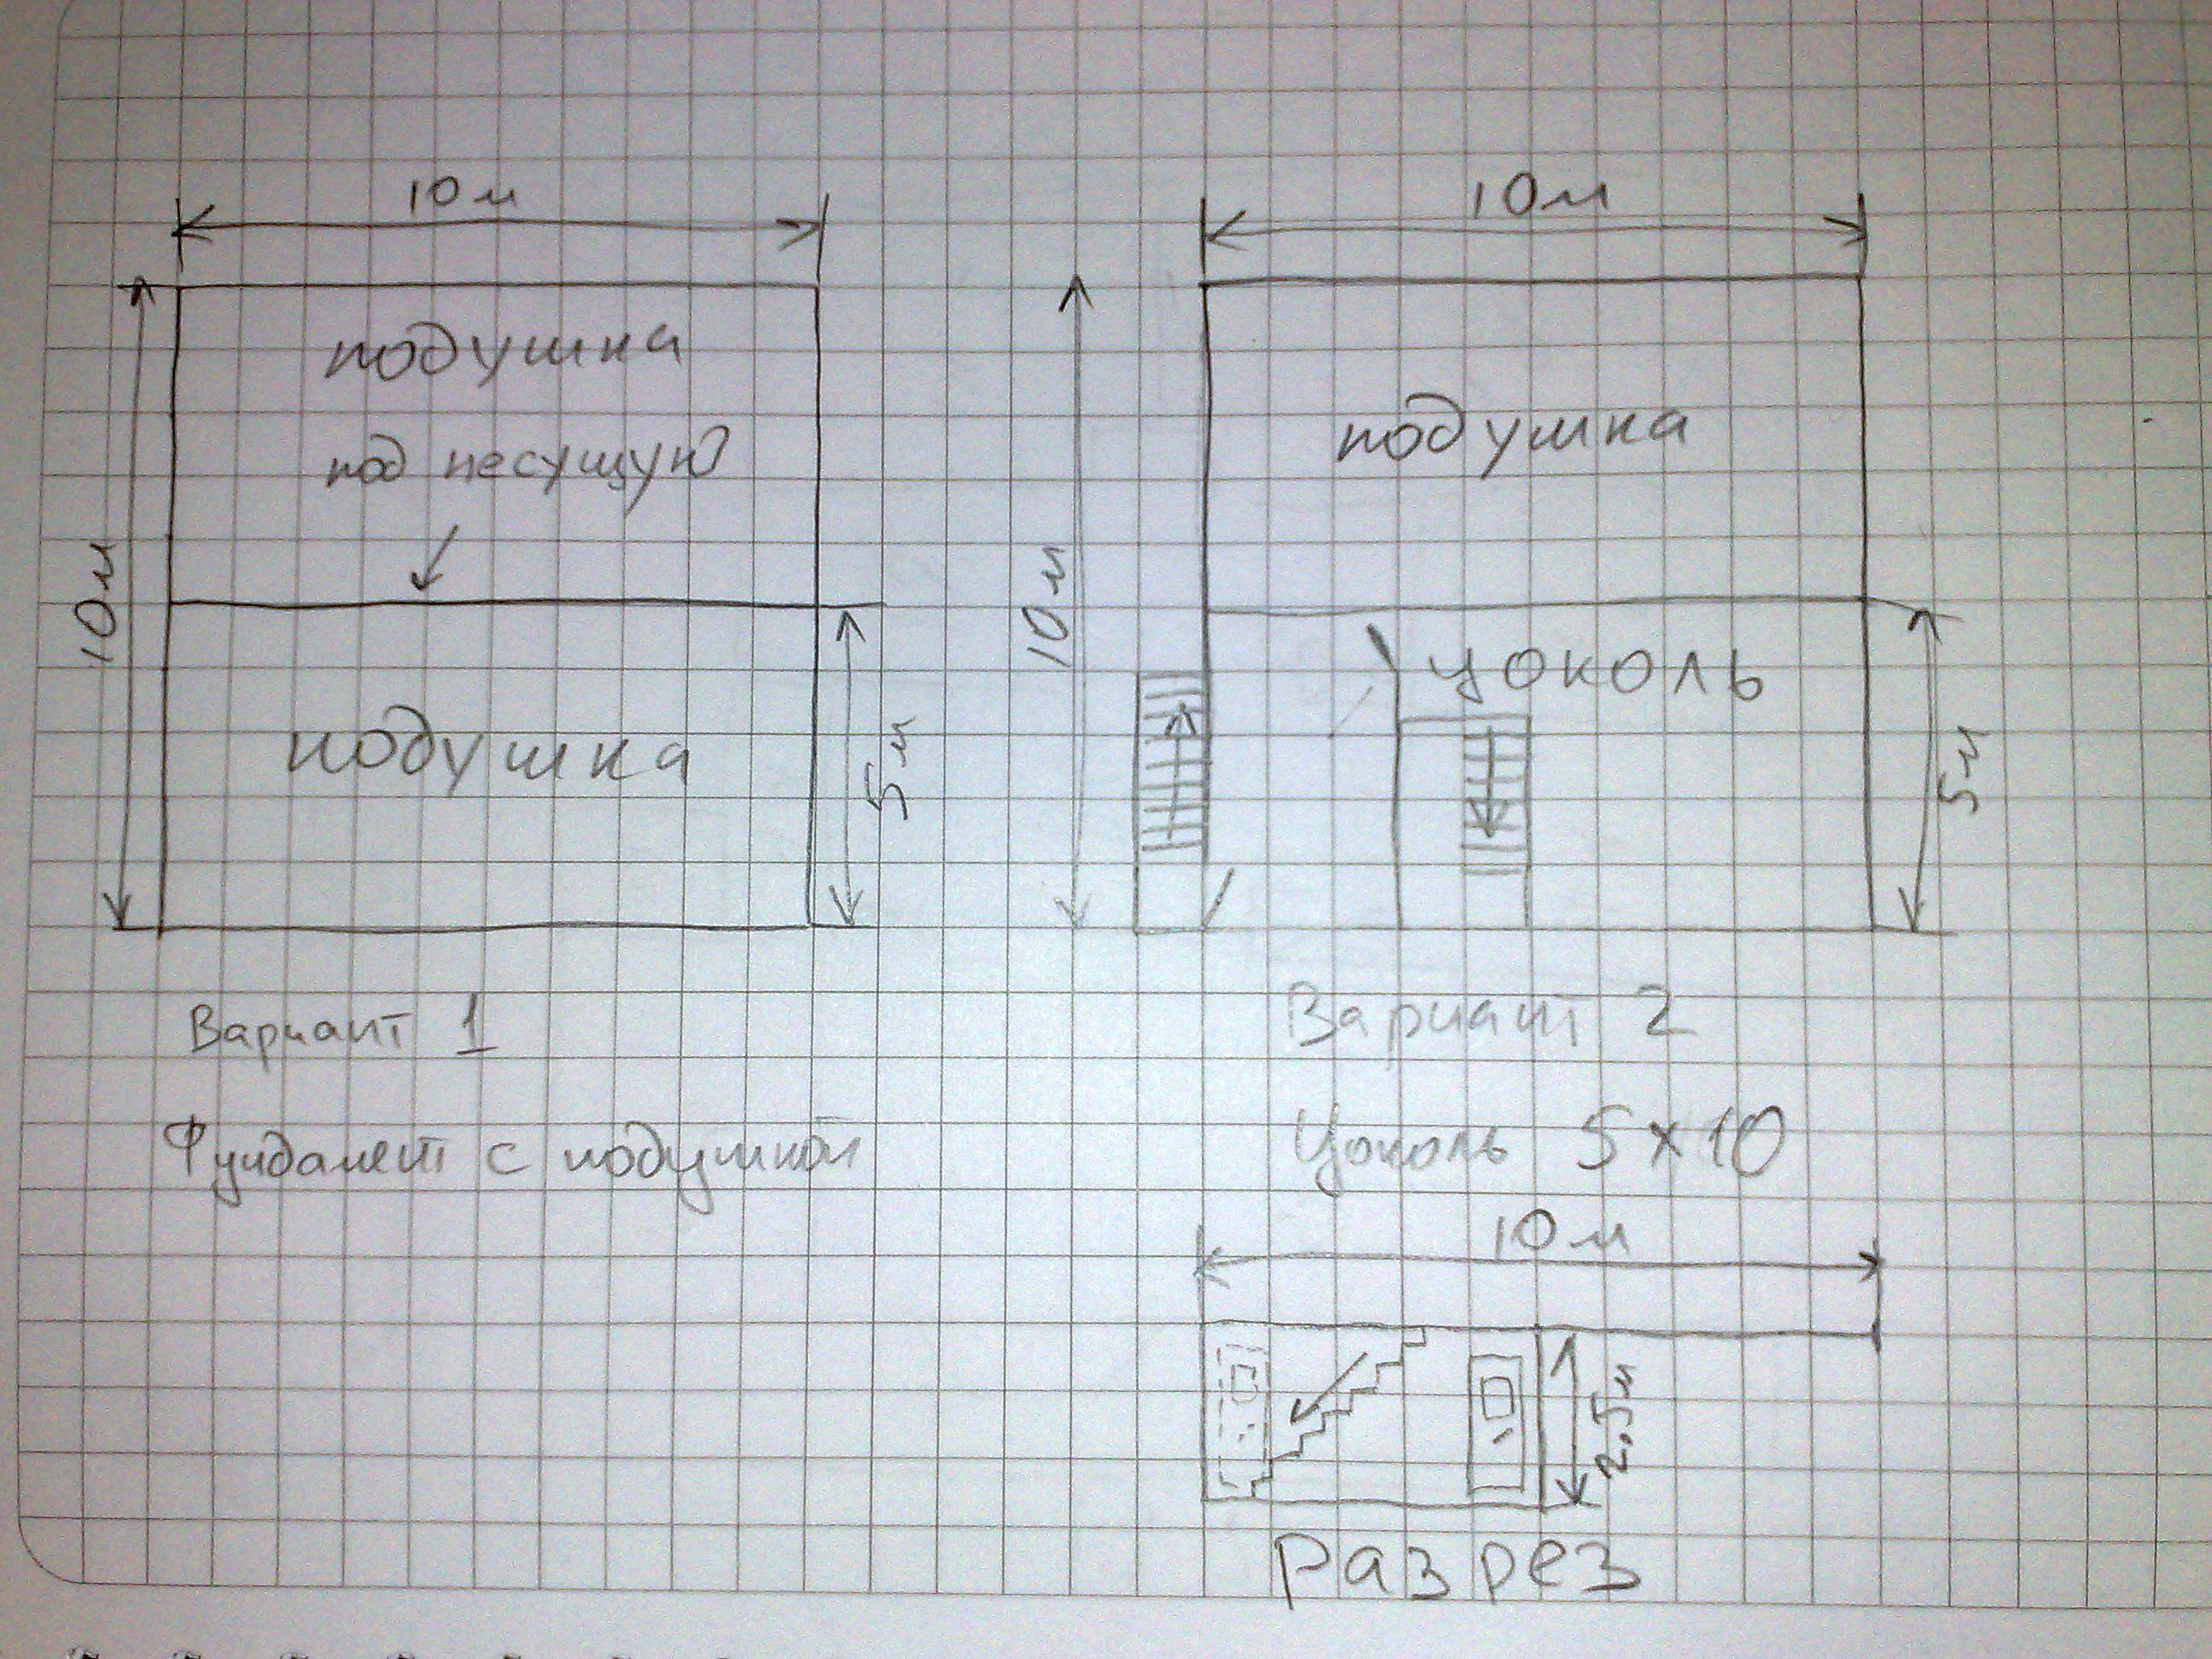 10м
10м
подушка
под несущую
10м
5м
подушка
Вариант 1
Фундамент с подушкой
10м
подушка
цоколь
5м
Вариант 2
Цоколь 5х10
10м
2.5м
разрез